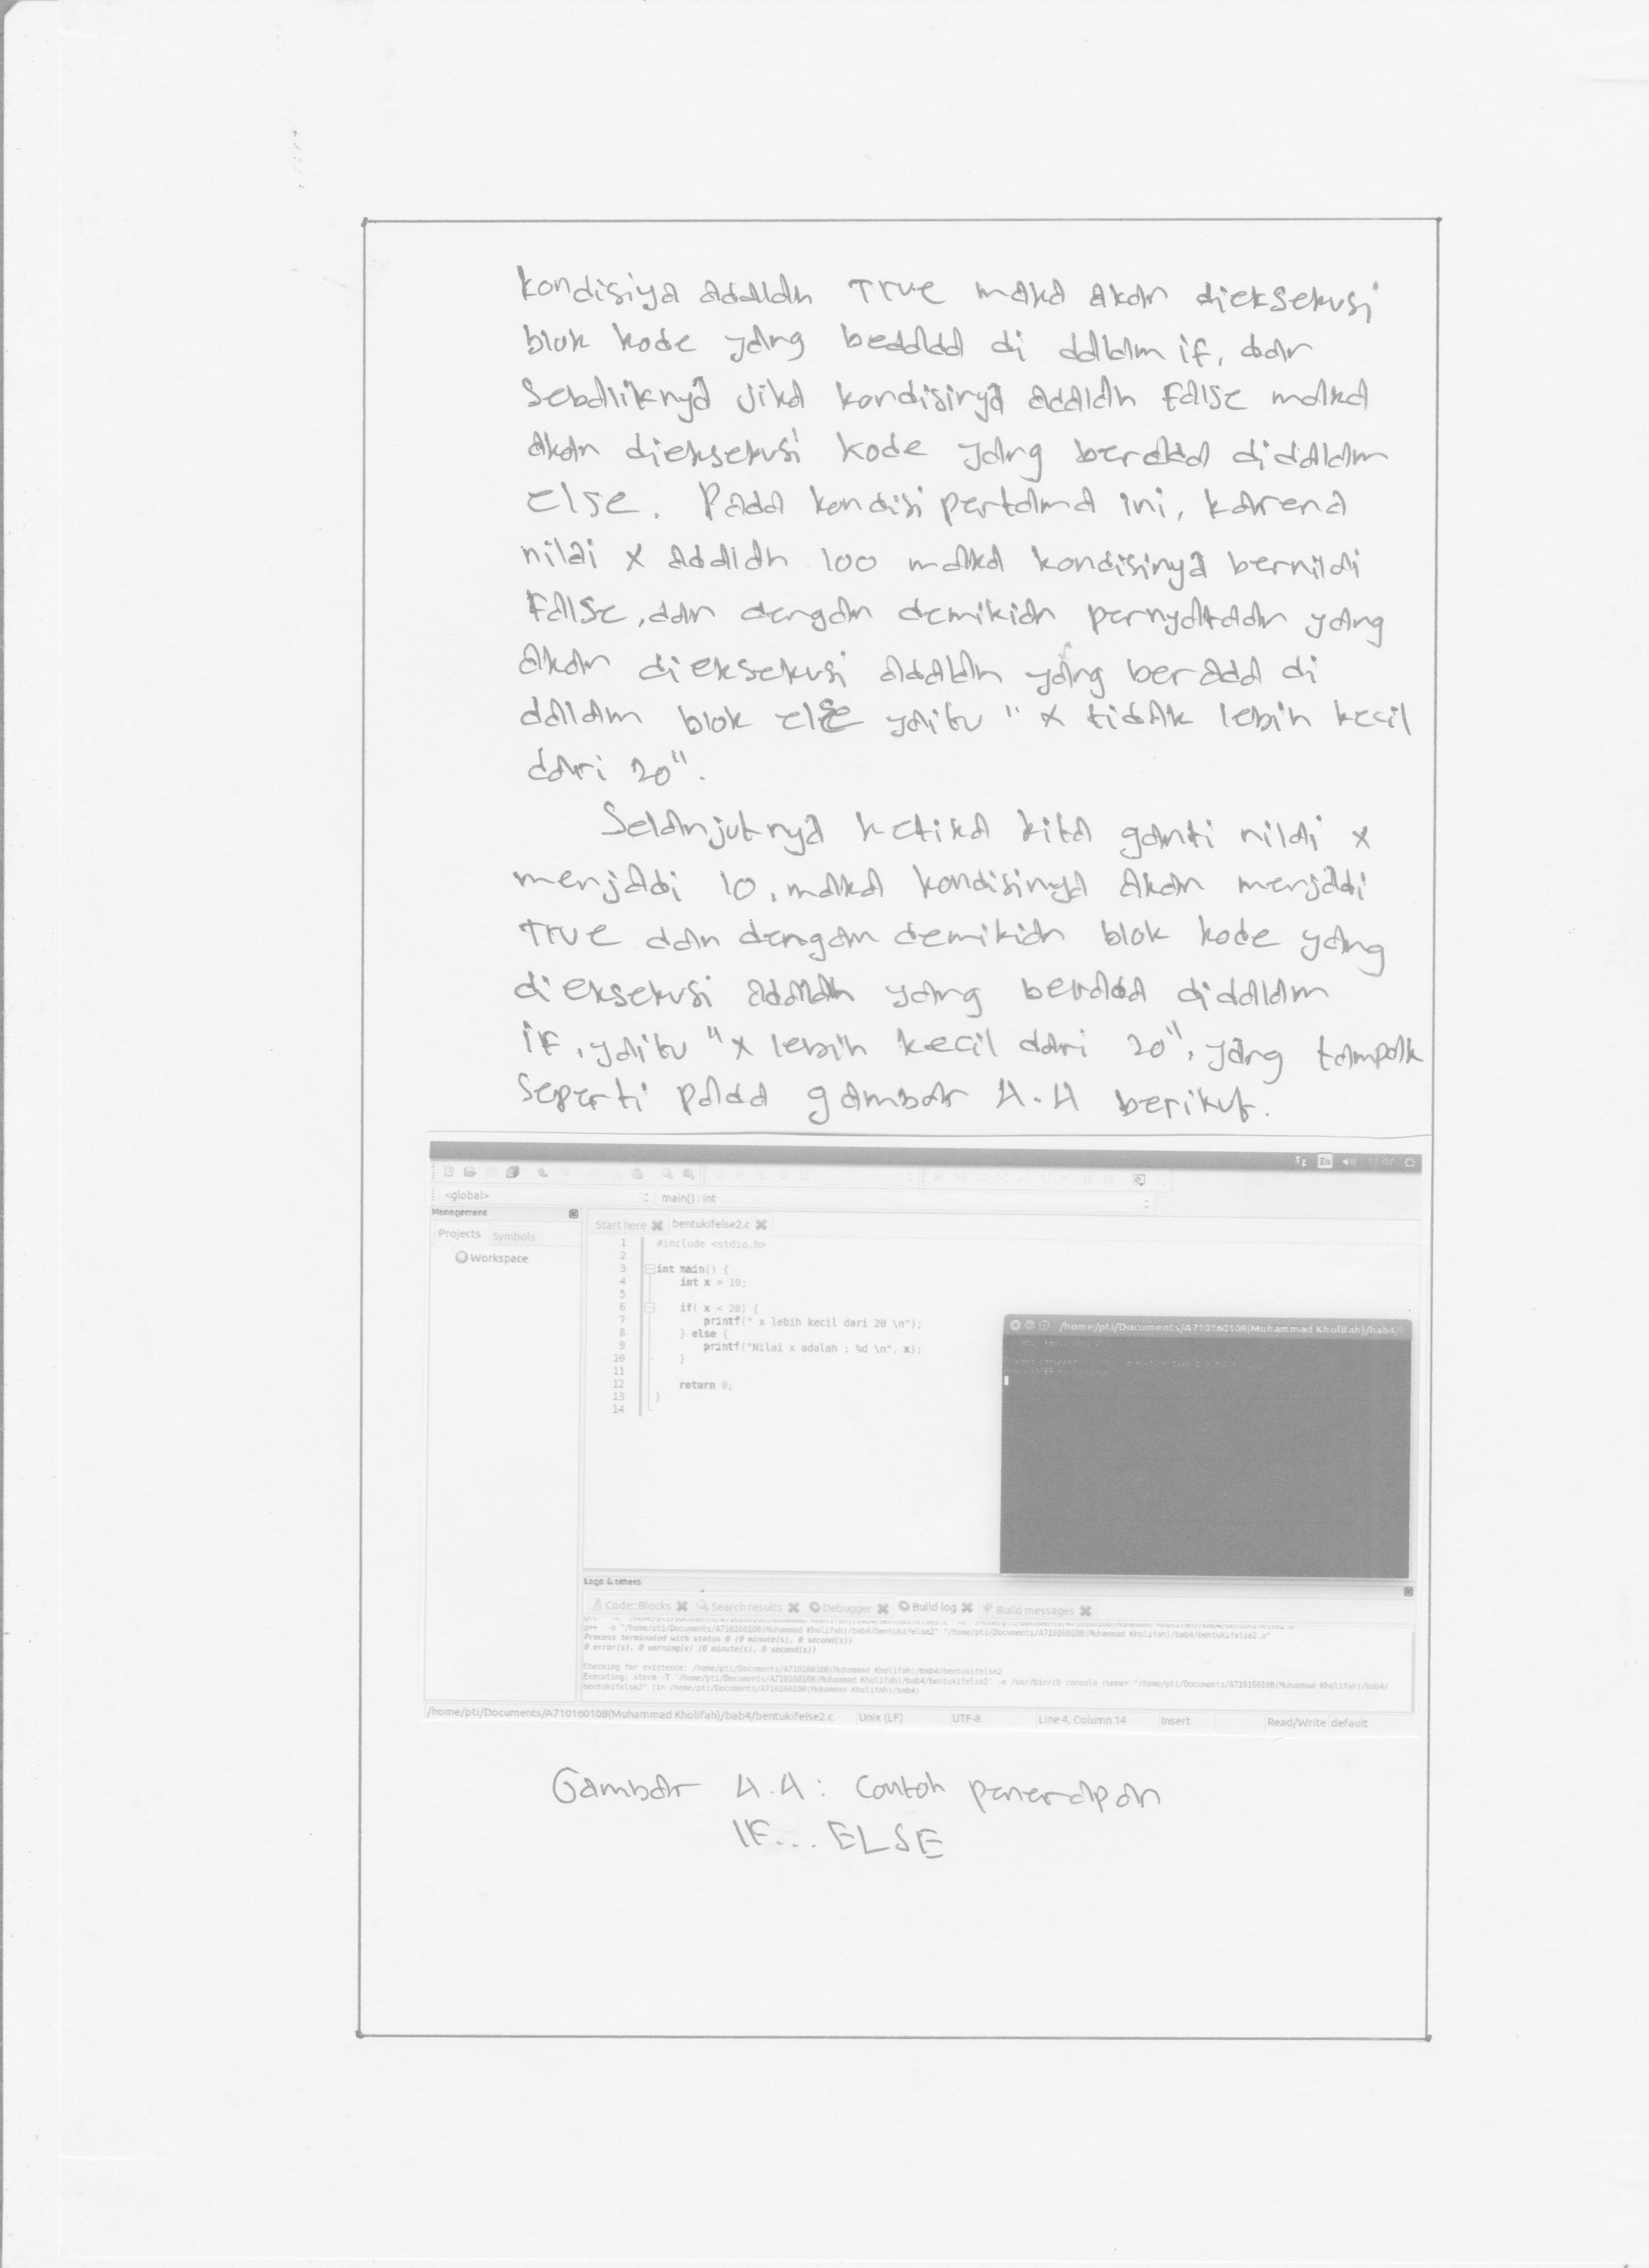 kondisiya adalah True maka akan dieksekusi
blok kode yang beadaa di dalam if, dan
Sebaliknya jika kondisinya adalah False maka
akan dieksekusi kode yang berada didalam
else. Pada kondisi pertama ini, karena
nilai x adalah 100 maka kondisinya bernilai
False, dan dengan demikian pernyataan yang
akan dieksekusi adalah yang berada di
dalam blok else yaitu "x tidak lebih kecil
dari 20".
Selanjutnya ketika kita ganti nilai x
menjadi 10, maka kondisinya akan menjadi
True dan dengan demikian blok kode yang
dieksekusi adalah yang berada didalam
if, yaitu "x lebih kecil dari 20", yang tampak
seperti pada gambar 4.4 berikut.
En
<global> main() : int
Management
Start here bentukifelse2.c
Projects Symbols
Workspace
1 #include <stdio.h>
2
3 int main() {
4 int x = 10;
5
6 if( x < 20) {
7 printf(" x lebih kecil dari 20 \n");
8 } else {
9 printf("Nilai x adalah : %d \n", x);
10 }
11
12 return 0;
13 }
14
/home/pti/Documents/A710160108(Muhammad Kholifah)/bab4/
Logs & others
Code::Blocks Search results Debugger Build log Build messages
g++ -o "/home/pti/Documents/A710160108(Muhammad Kholifah)/bab4/bentukifelse2" "/home/pti/Documents/A710160108(Muhammad Kholifah)/bab4/bentukifelse2.o"
Process terminated with status 0 (0 minute(s), 0 second(s))
0 error(s), 0 warning(s) (0 minute(s), 0 second(s))
Checking for existence: /home/pti/Documents/A710160108(Muhammad Kholifah)/bab4/bentukifelse2
Executing: xterm -T '/home/pti/Documents/A710160108(Muhammad Kholifah)/bab4/bentukifelse2' -e /usr/bin/cb_console_runner "/home/pti/Documents/A710160108(Muhammad Kholifah)/bab4/
bentukifelse2" (in /home/pti/Documents/A710160108(Muhammad Kholifah)/bab4)
/home/pti/Documents/A710160108(Muhammad Kholifah)/bab4/bentukifelse2.c Unix (LF) UTF-8 Line 4, Column 14 Insert Read/Write default
Gambar 4.4: Contoh penerapan
IF... ELSE